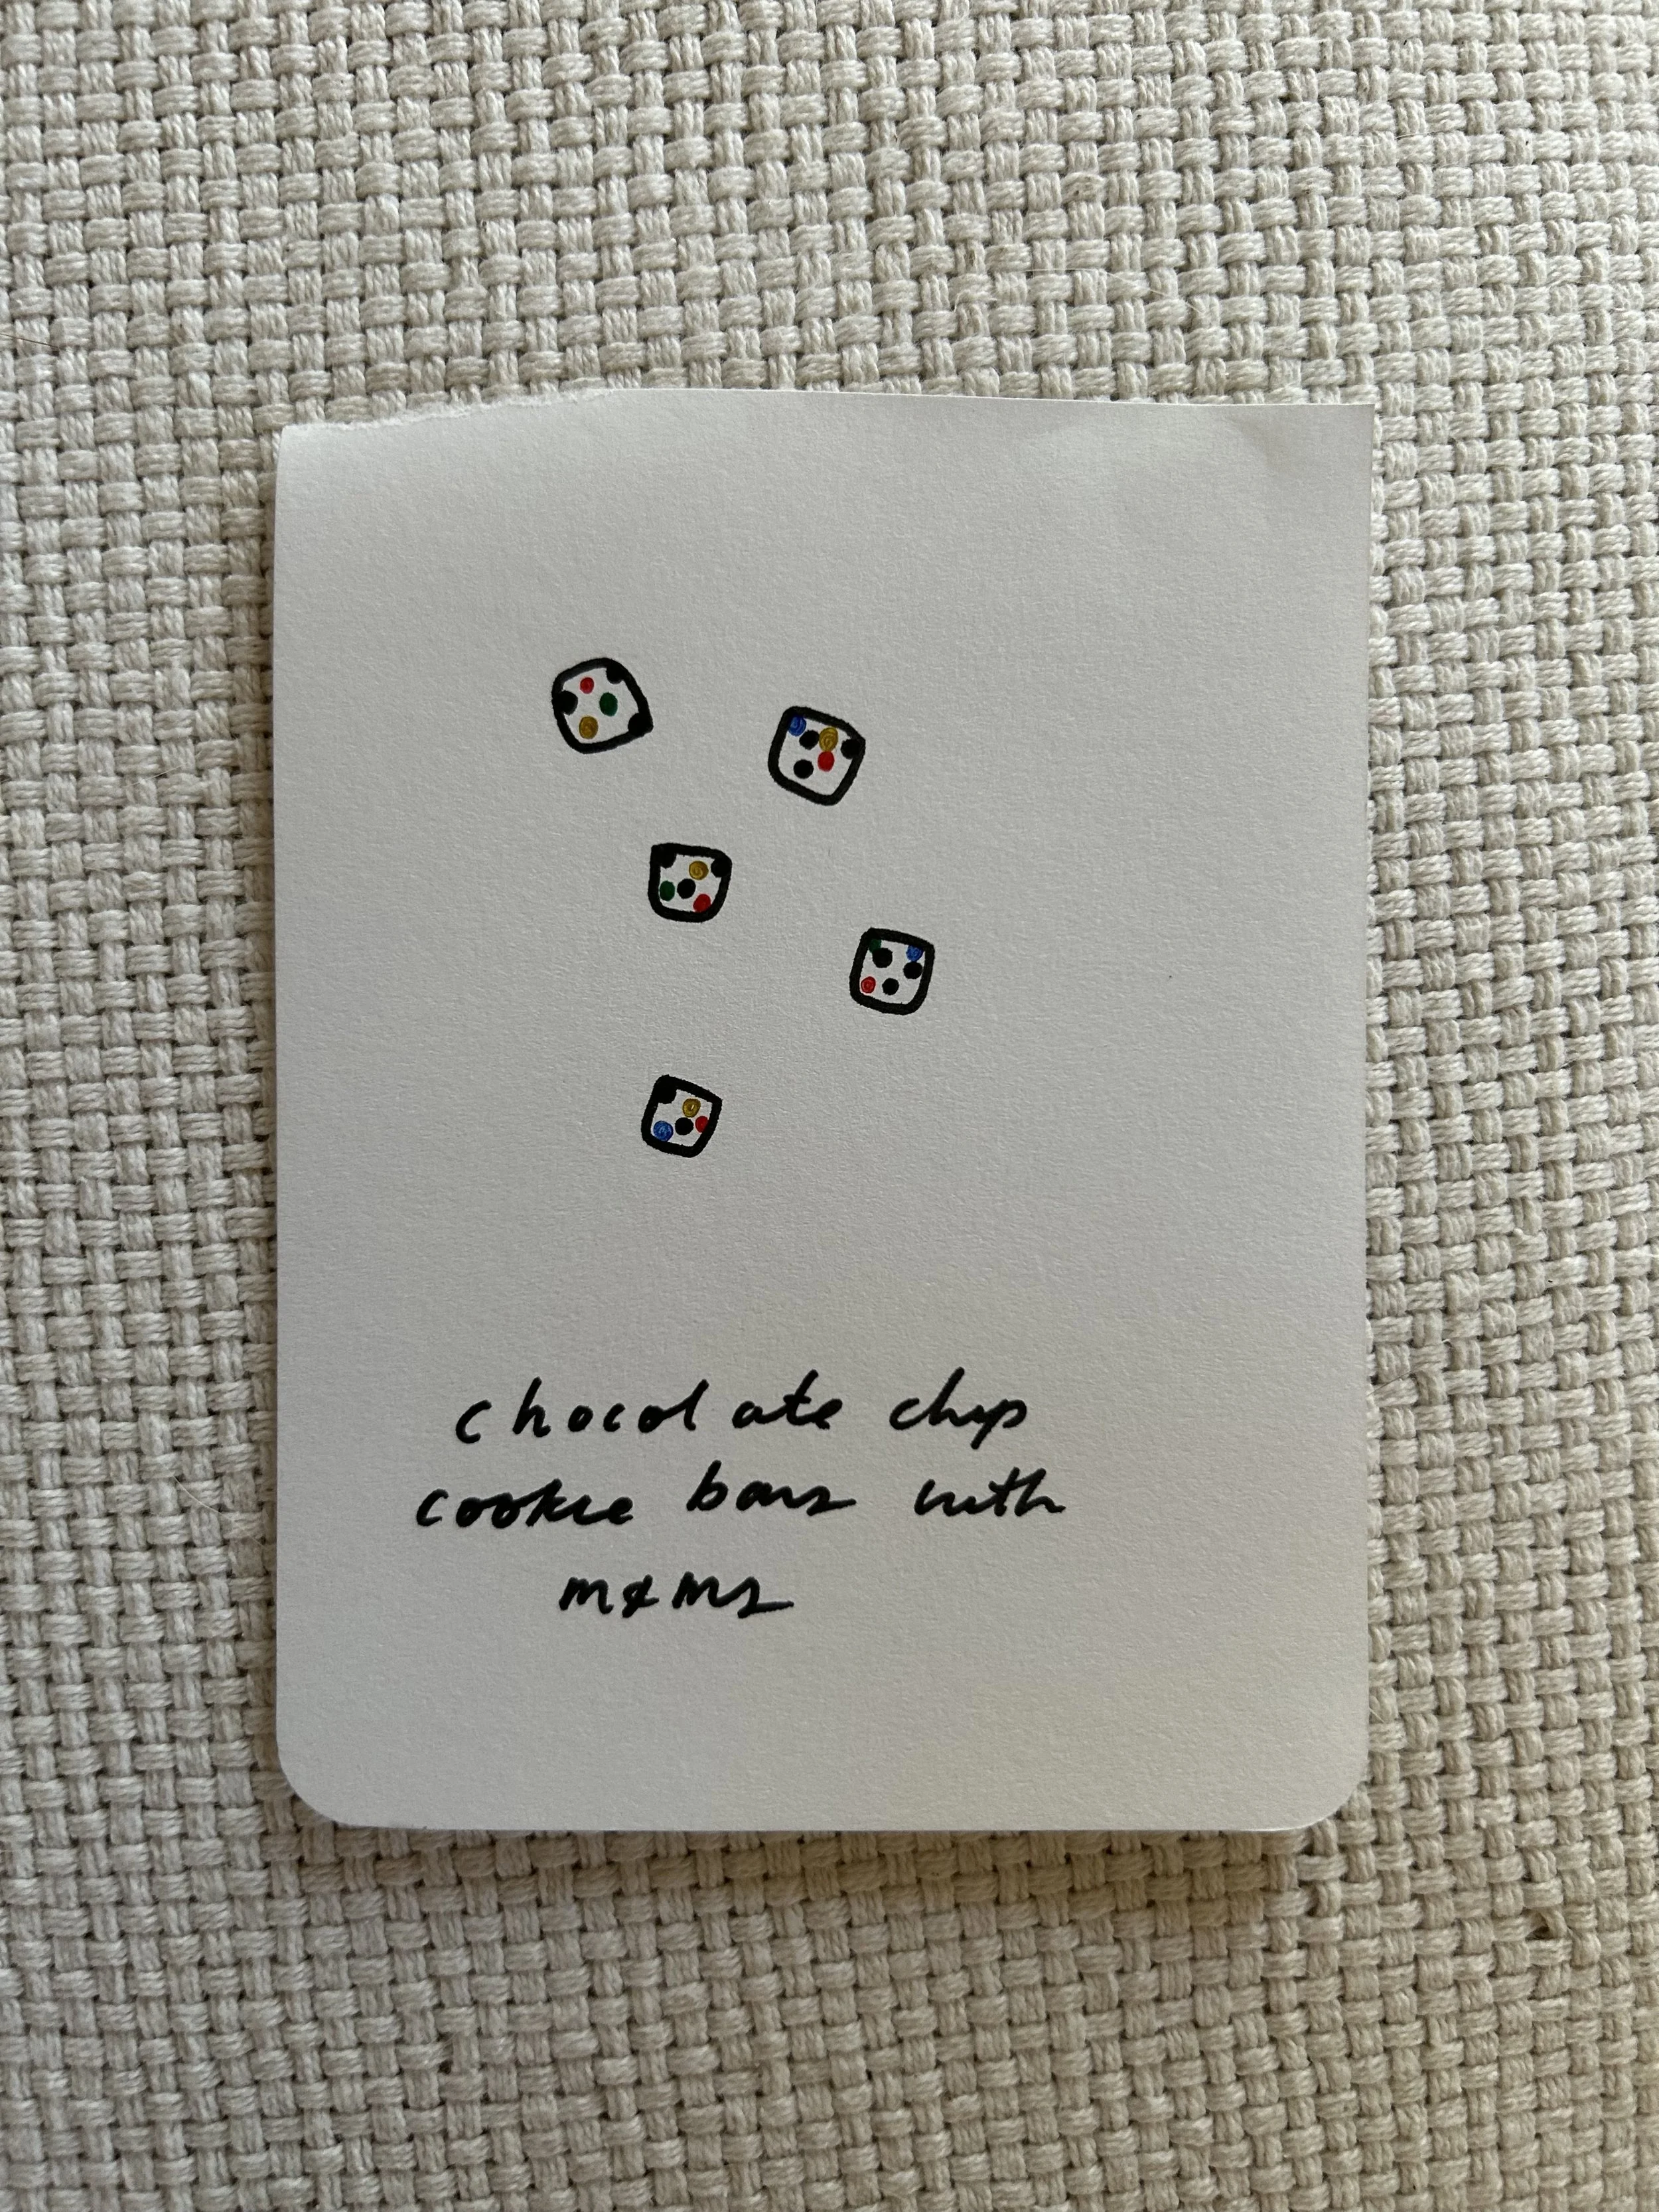 chocolate chip
cookie bars with
m&ms